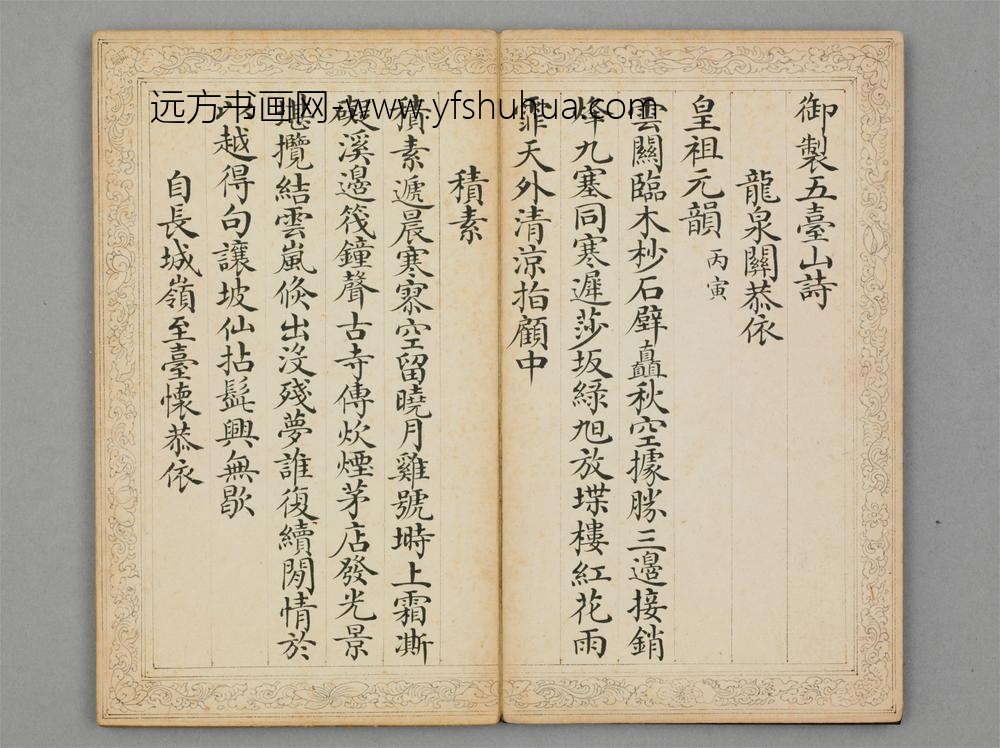 远方书画网-www.yfshuhua.com
御製五臺山詩
龍泉關恭依
皇祖元韻 丙寅
雲關臨木杪石壁矗秋空據勝三邊接銷
烽九塞同寒遲莎坂綠旭放堞樓紅花雨
霏天外清涼指顧中
積素
積素遞晨寒寥空留曉月雞號塒上霜澌
礙溪邊筏鐘聲古寺傳炊煙茅店發光景
堪攬結雲嵐倐出沒殘夢誰復續閒情於
以越得句讓坡仙拈髭興無歇
自長城嶺至臺懷恭依